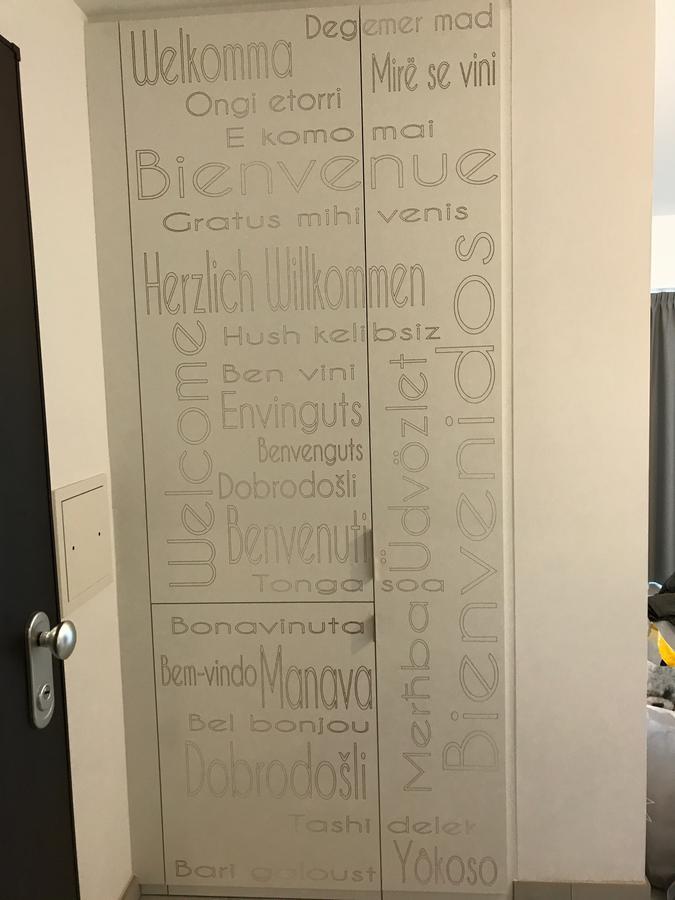 Degemer mad
Welkomma
Mirë se vini
Ongi etorri
E komo mai
Bienvenue
Gratus mihi venis
Herzlich Willkommen
Bienvenidos
Hush kelibsiz
Welcome
Ben vini
Üdvözlet
Envinguts
Benvenguts
Dobrodošli
Benvenuti
Tonga soa
Bonavinuta
Merħba
Bem-vindo
Manava
Bel bonjou
Dobrodošli
Tashi delek
Bari galoust
Yôkoso